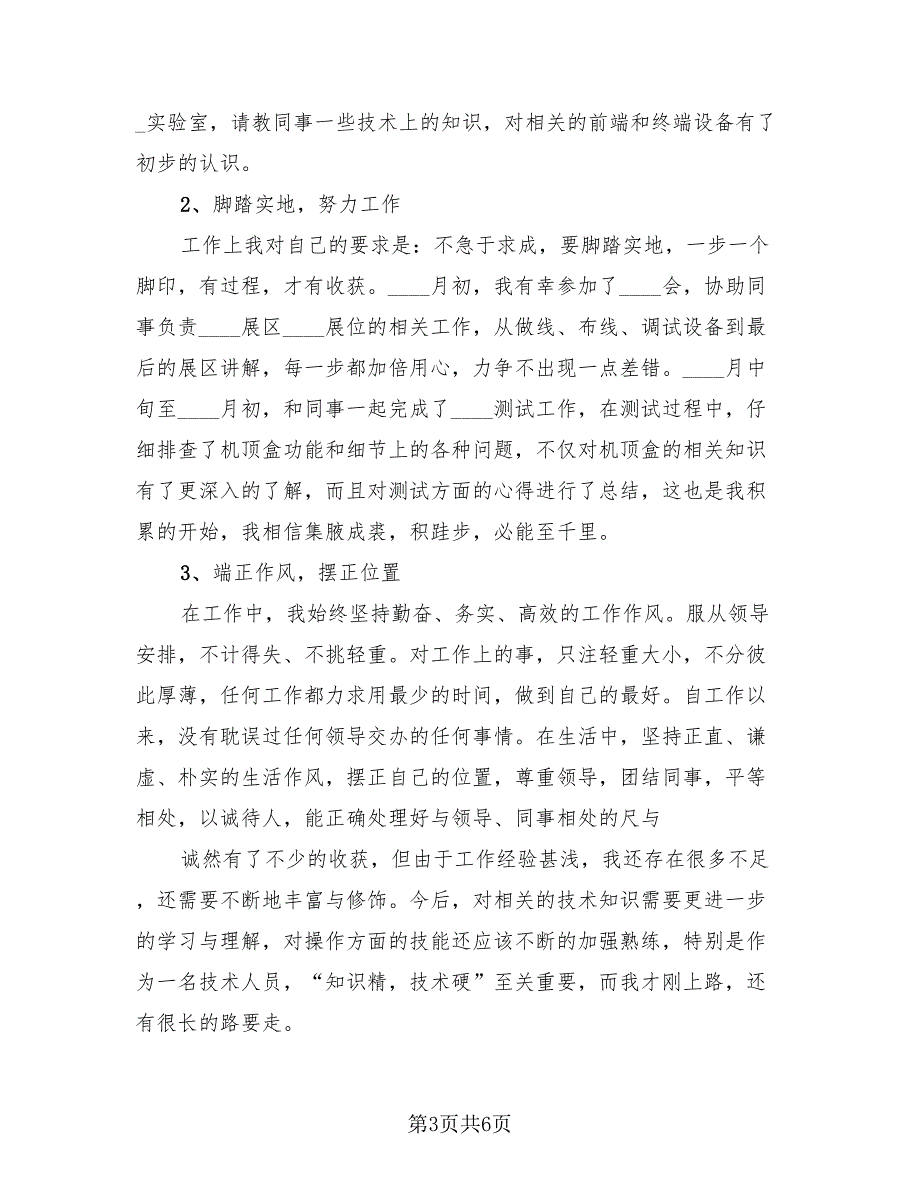 _实验室，请教同事一些技术上的知识，对相关的前端和终端设备有了
初步的认识。
2、脚踏实地，努力工作
工作上我对自己的要求是：不急于求成，要脚踏实地，一步一个
脚印，有过程，才有收获。____月初，我有幸参加了____会，协助同
事负责____展区____展位的相关工作，从做线、布线、调试设备到最
后的展区讲解，每一步都加倍用心，力争不出现一点差错。____月中
旬至____月初，和同事一起完成了____测试工作，在测试过程中，仔
细排查了机顶盒功能和细节上的各种问题，不仅对机顶盒的相关知识
有了更深入的了解，而且对测试方面的心得进行了总结，这也是我积
累的开始，我相信集腋成裘，积跬步，必能至千里。
3、端正作风，摆正位置
在工作中，我始终坚持勤奋、务实、高效的工作作风。服从领导
安排，不计得失、不挑轻重。对工作上的事，只注轻重大小，不分彼
此厚薄，任何工作都力求用最少的时间，做到自己的最好。自工作以
来，没有耽误过任何领导交办的任何事情。在生活中，坚持正直、谦
虚、朴实的生活作风，摆正自己的位置，尊重领导，团结同事，平等
相处，以诚待人，能正确处理好与领导、同事相处的尺与
诚然有了不少的收获，但由于工作经验甚浅，我还存在很多不足
，还需要不断地丰富与修饰。今后，对相关的技术知识需要更进一步
的学习与理解，对操作方面的技能还应该不断的加强熟练，特别是作
为一名技术人员，“知识精，技术硬”至关重要，而我才刚上路，还
有很长的路要走。
第3页共6页